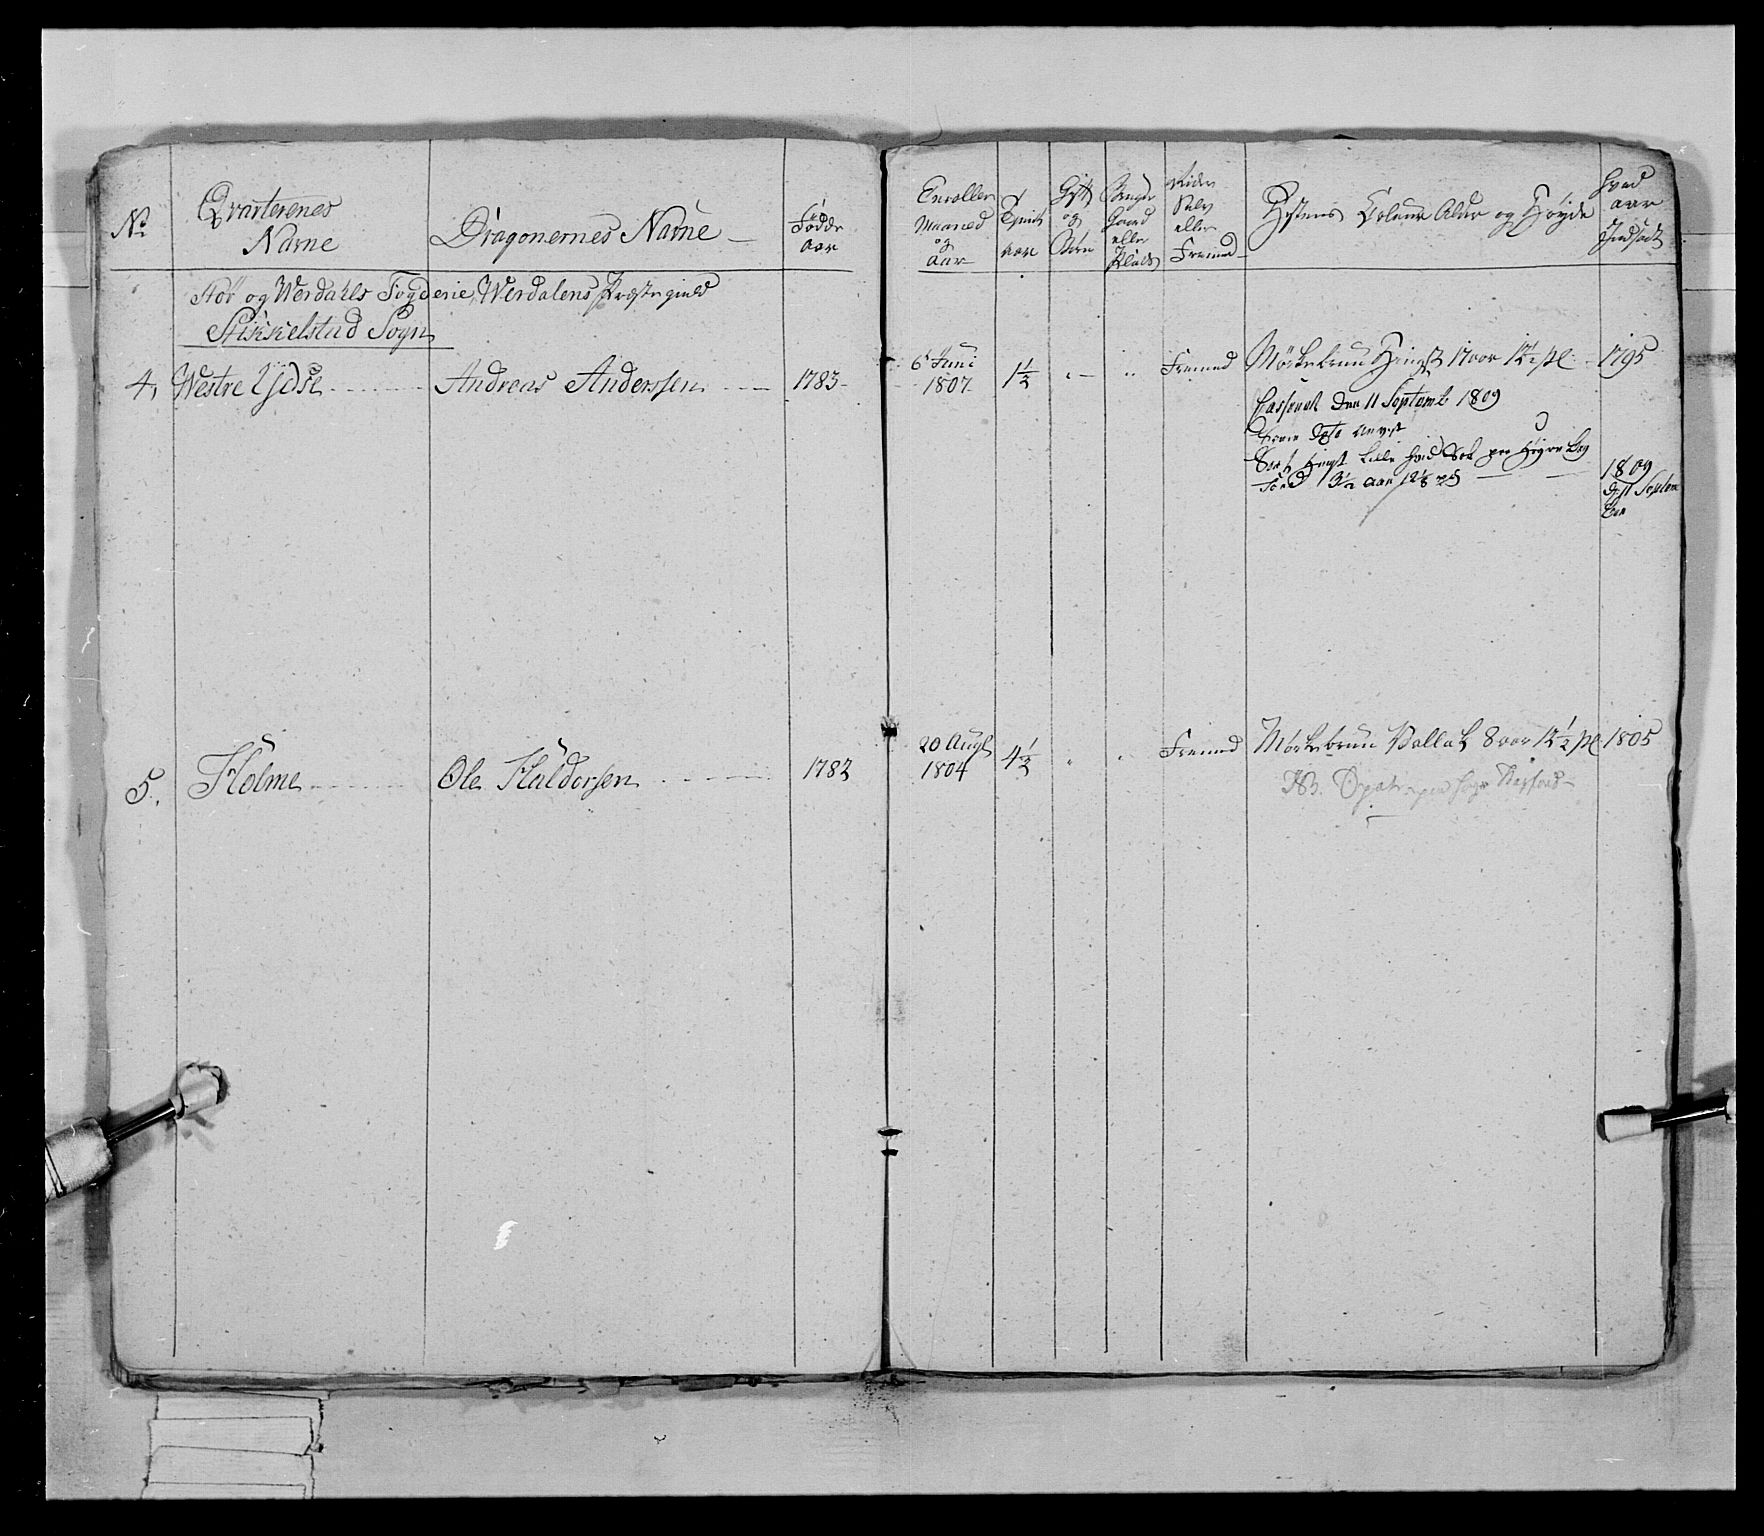 No
Qvarterenes
Navne
Dragonernes Navne
Födde
aar
Enroller
Maaned
og
aar
Tjenst
aar
Gift
og
Børn
Bruger
Gaard
eller
Plads
Rider
Selv
eller
Fremmed
Hestens Coleur Alder og Höyde
hvad
aar
Indsadt
Stör og Werdahls Fogderie, Werdalens Præstegield
Stikkelstad Sogn
4, Westre Ydse Andreas Anderssen 1783
6t Juni
1807
1½ " " Fremed Mörkebrun Hingst 17 aar 12½ pl: 1795
Casseret den 11 Septemb 1809
dato
Sort Hingst Lille hvid Sok paa Høyre bag
Food 3½ aar 12⅛
1809
d: 11 Septem
ber
5. Holme Ole Haldorsen 1782
20 Augt
1804
4½ " " Fremed Mörkebrun Vallak 8 aar 12½ pl 1805
NB.